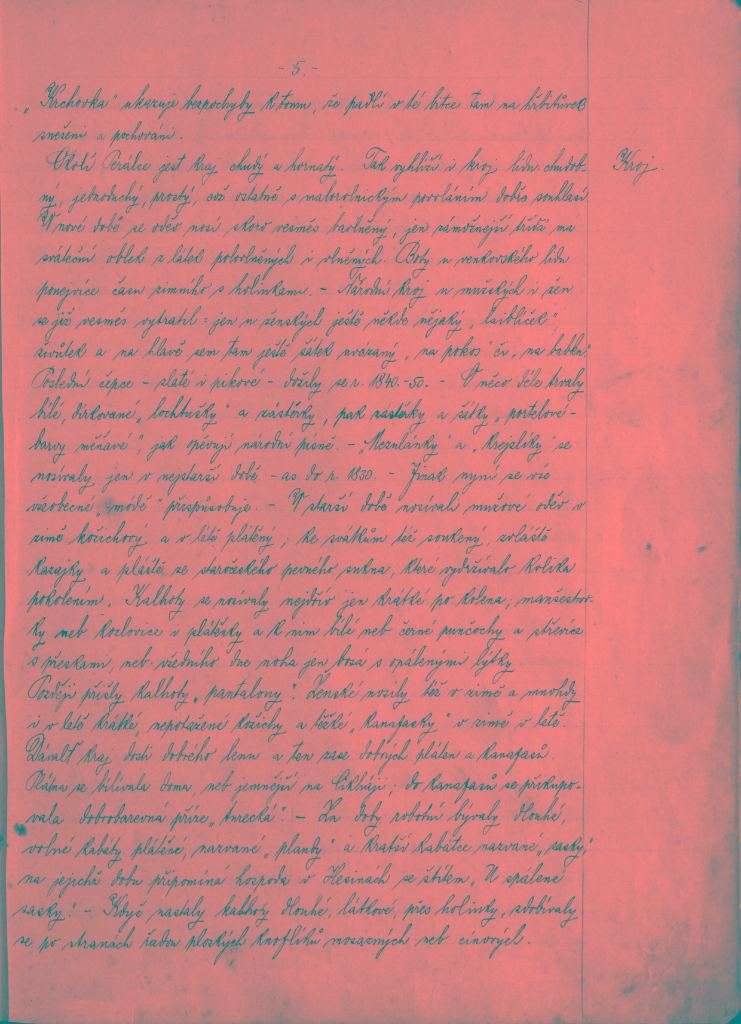 - 5. -
„Krchovka" ukazuje bezpochyby k tomu, že padlí v té bitce tam na hřbitůvek
snešeni a pochováni.
Okolí Perálce jest kraj chudý a hornatý. Tak vyhlíží i kroj lidu: chudob-
Kroj.
ný, jednoduchý, prostý, což ostatně s malorolnickým povoláním dobře souhlasí.
V nové době se oděv nosí skoro vesměs bavlněný, jen zámožnější třída má
sváteční oblek z látek polovlněných i vlněných. Boty u venkovského lidu
ponejvíce času zimního s holínkami. - Národní kroj u mužských i žen
se již vesměs vytratil: jen u ženských ještě někde nějaký „laiblíček",
živůtek a na hlavě sem tam ještě šátek uvázaný „na pokos" či „na babku".
Poslední čepce - zlaté i pikové - dožily se r. 1840.-50. - V něco déle trvaly
bílé, dírkované „lochtušky" a zástěrky, pak zástěrky a šátky „portelové-
barvy měňavé", jak opěvují národní písně. - „Mezulánky" a „krejzlíky" se
nosívaly jen v nejstarší době - as do r. 1830. - Jinak nyní se vše
všeobecné „modě" přispůsobuje. - V starší době nosívali mužové oděv v
zimě kožichový a v létě plátěný; ke svátkům též soukený, zvláště
kazajky a pláště ze staročeského pevného sukna, které vydržívalo kolika
pokolením. Kalhoty se nosívaly nejdřív jen krátké po kolena; manšestro-
ky neb kozlovice i plátěnky a k nim bílé neb černé punčochy a střevíce
s přeskami, neb všedního dne noha jen bosá s opálenými lýtky.
Později přešly kalhoty „pantalony". Ženské nosily též v zimě a mnohdy
i v létě krátké, nepotažené kožichy a těžké „kanafasky" v zimě v létě.
Dávalť kraj dosti dobrého lenu a ten zase dobrých pláten a kanafasů.
Plátna se bílívala doma, neb jemnější na Cikháji; do kanafasů se přikupo-
vala dobrobarevná příze „turecká". - Za doby robotní bývaly dlouhé,
volné kabáty plátěné, nazvané „plandy" a kratší kabátce nazvané „sasky",
na jejichž dobu připomíná hospoda v Hesinách se štítem „U spálené
sasky." - Když nastaly kalhoty dlouhé, látkové, přes holínky, zdobívaly
se po stranách řadou ploských knoflíků mosazných neb cínových.